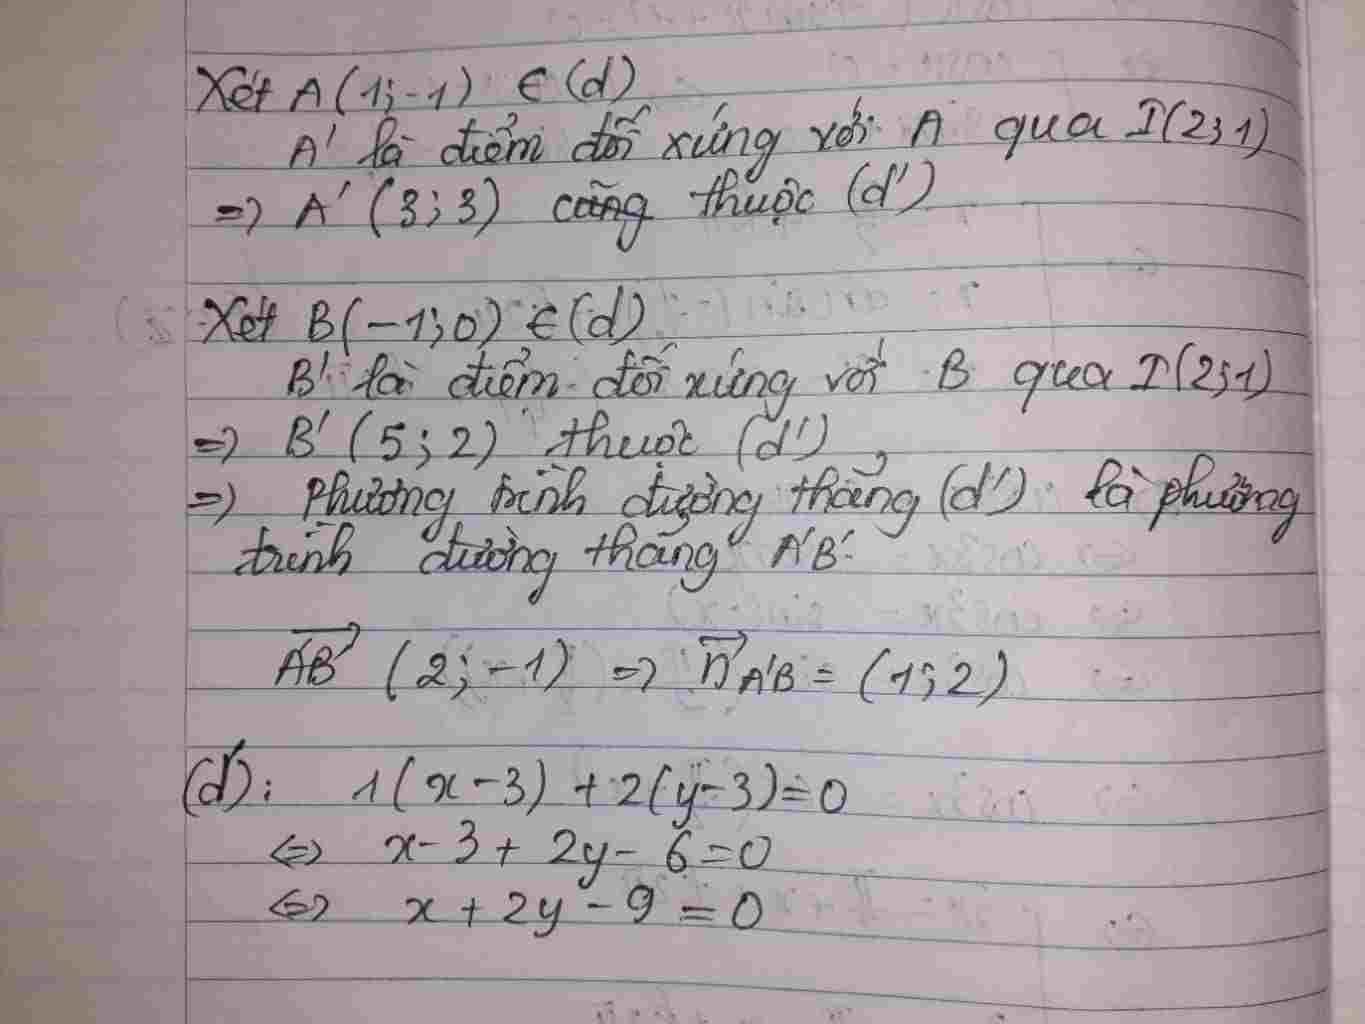 Xét A(1;-1) ∈ (d)
A' là điểm đối xứng với A qua I(2;1)
=> A' (3;3) cũng thuộc (d')
Xét B(-1;0) ∈ (d)
B' là điểm đối xứng với B qua I(2;1)
=> B' (5;2) thuộc (d')
=> Phương trình đường thẳng (d') là phương
trình đường thẳng A'B'
A'B' (2;-1) => n A'B = (1;2)
(d'): 1(x-3) + 2(y-3)=0
<=> x-3+ 2y-6=0
<=> x+2y-9=0